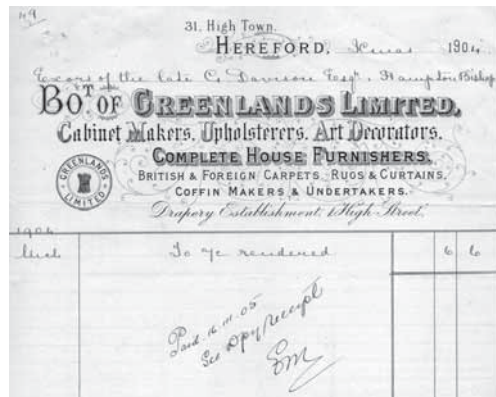 49
31. High Town.
HEREFORD, Xmas 1904
Excors of the late C. Davison Esqr. Hampton Bishop
BoT OF GREENLANDS LIMITED,
Cabinet Makers, Upholsterers, Art Decorators,
COMPLETE HOUSE FURNISHERS.
BRITISH & FOREIGN CARPETS, RUGS & CURTAINS,
COFFIN MAKERS & UNDERTAKERS.
GREENLANDS LIMITED
Drapery Establishment, 1 High Street,
1904
Mich To a/c rendered 6 6
Paid 16.III.05
See Dpy receipt